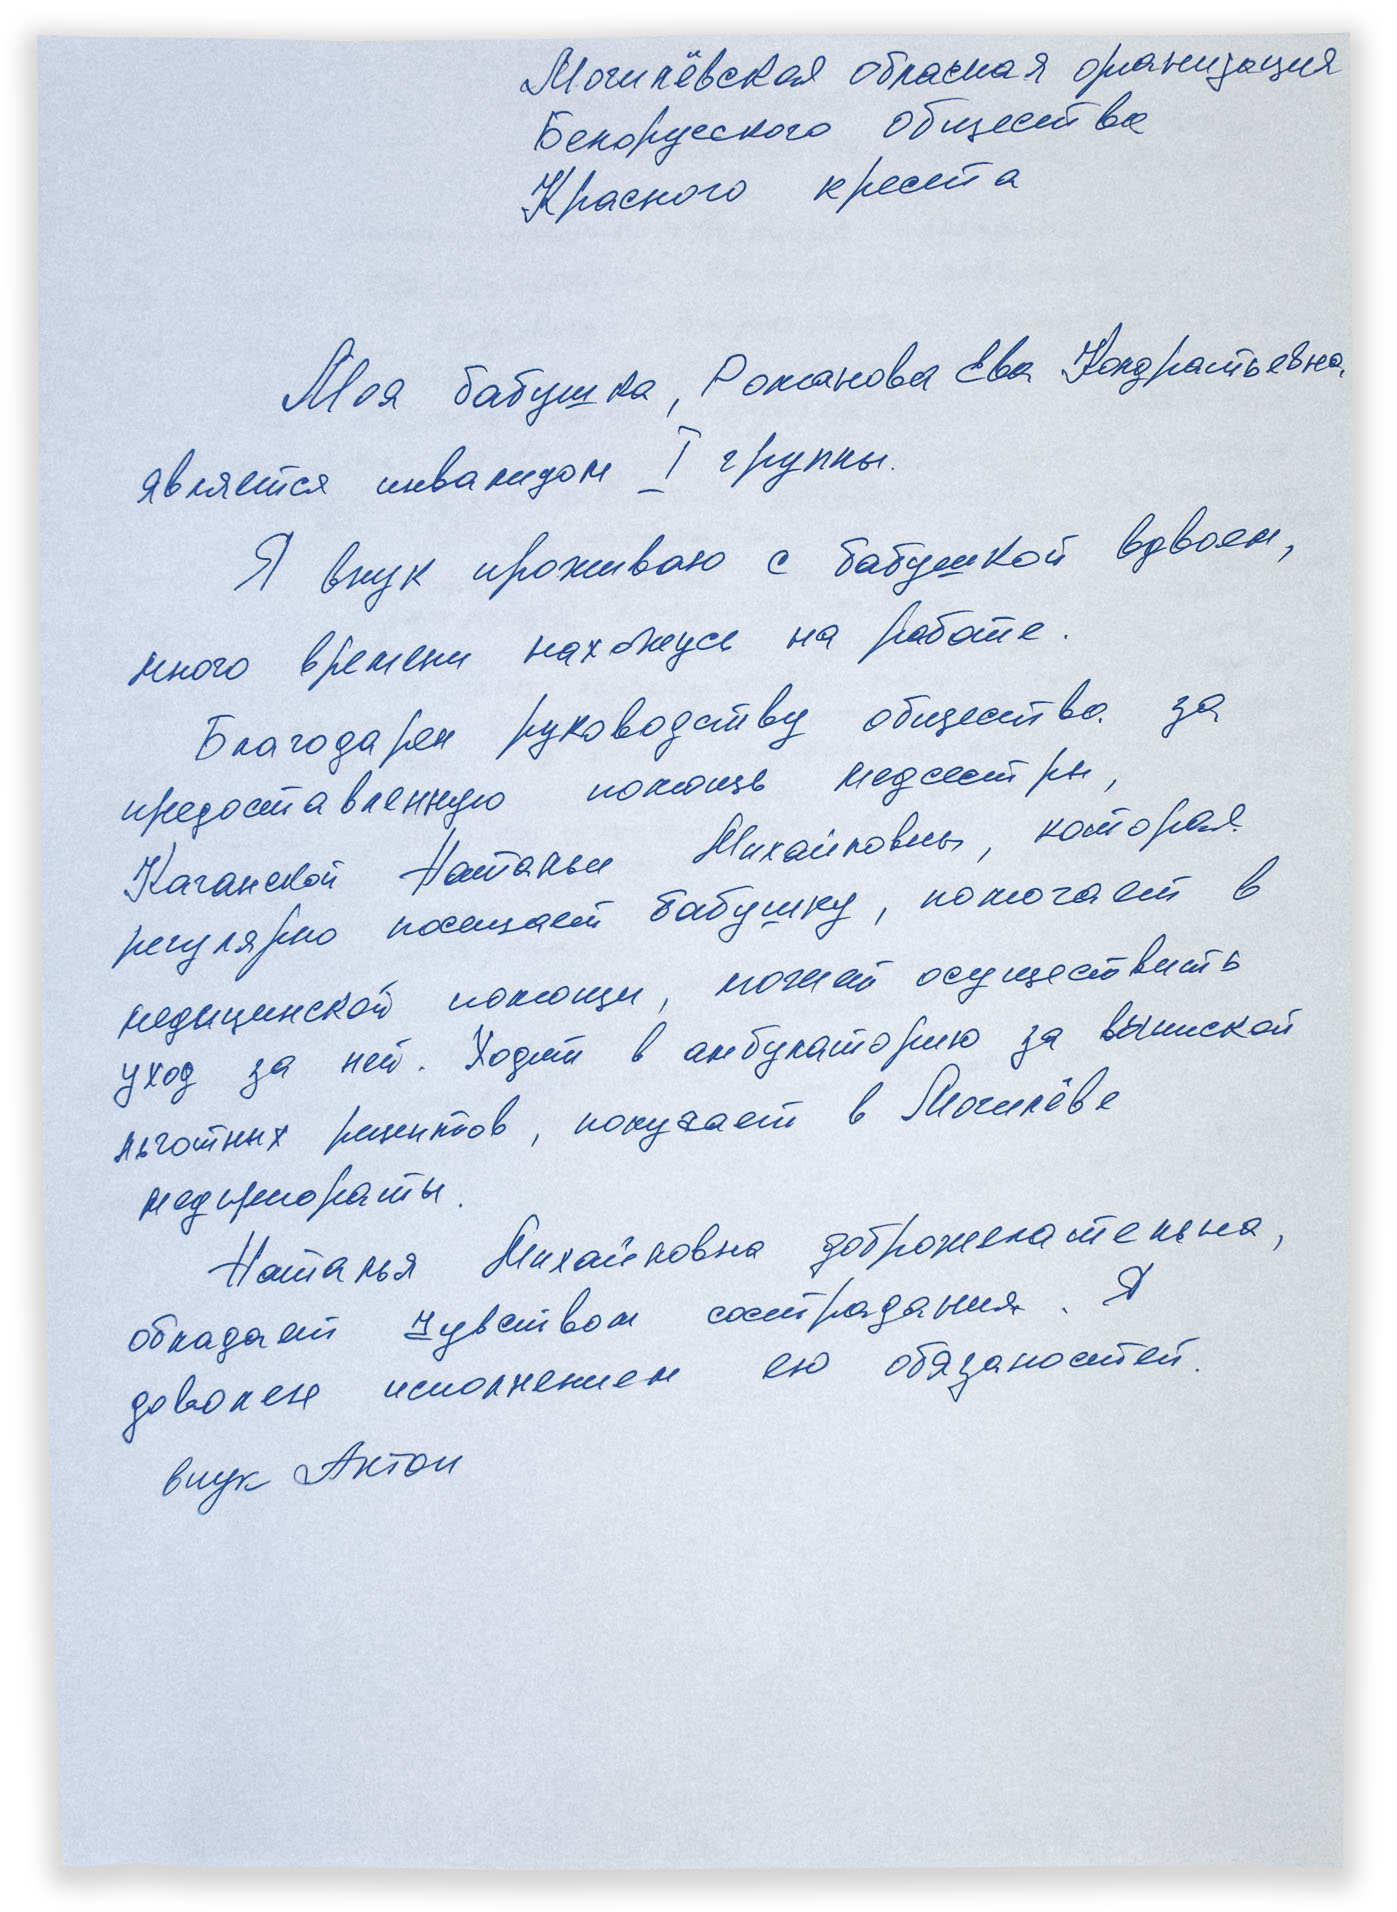 Могилёвская обласная организация
Белорусского общества
Красного креста
Моя бабушка, Романова Ева Кондратьевна,
является инвалидом I группы.
Я внук проживаю с бабушкой вдвоем,
много времени нахожусь на работе.
Благодарен руководству общества за
предоставленную помощь медсестры,
Каганской Натальи Михайловны, которая
регулярно посещает бабушку, помогает в
медицинской помощи, может осуществить
уход за ней. Ходит в амбулаторию за выпиской
льготных рецептов, покупает в Могилёве
медпрепораты.
Наталья Михайловна доброжелательна,
обладает чувством сострадания. Я
доволен исполнением ею обязаностей.
внук Антон